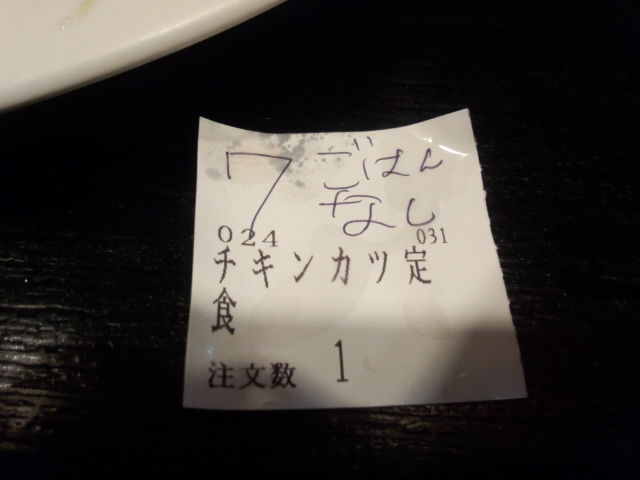 7 ごはん
なし
024 031
チキンカツ定
食
注文数 1